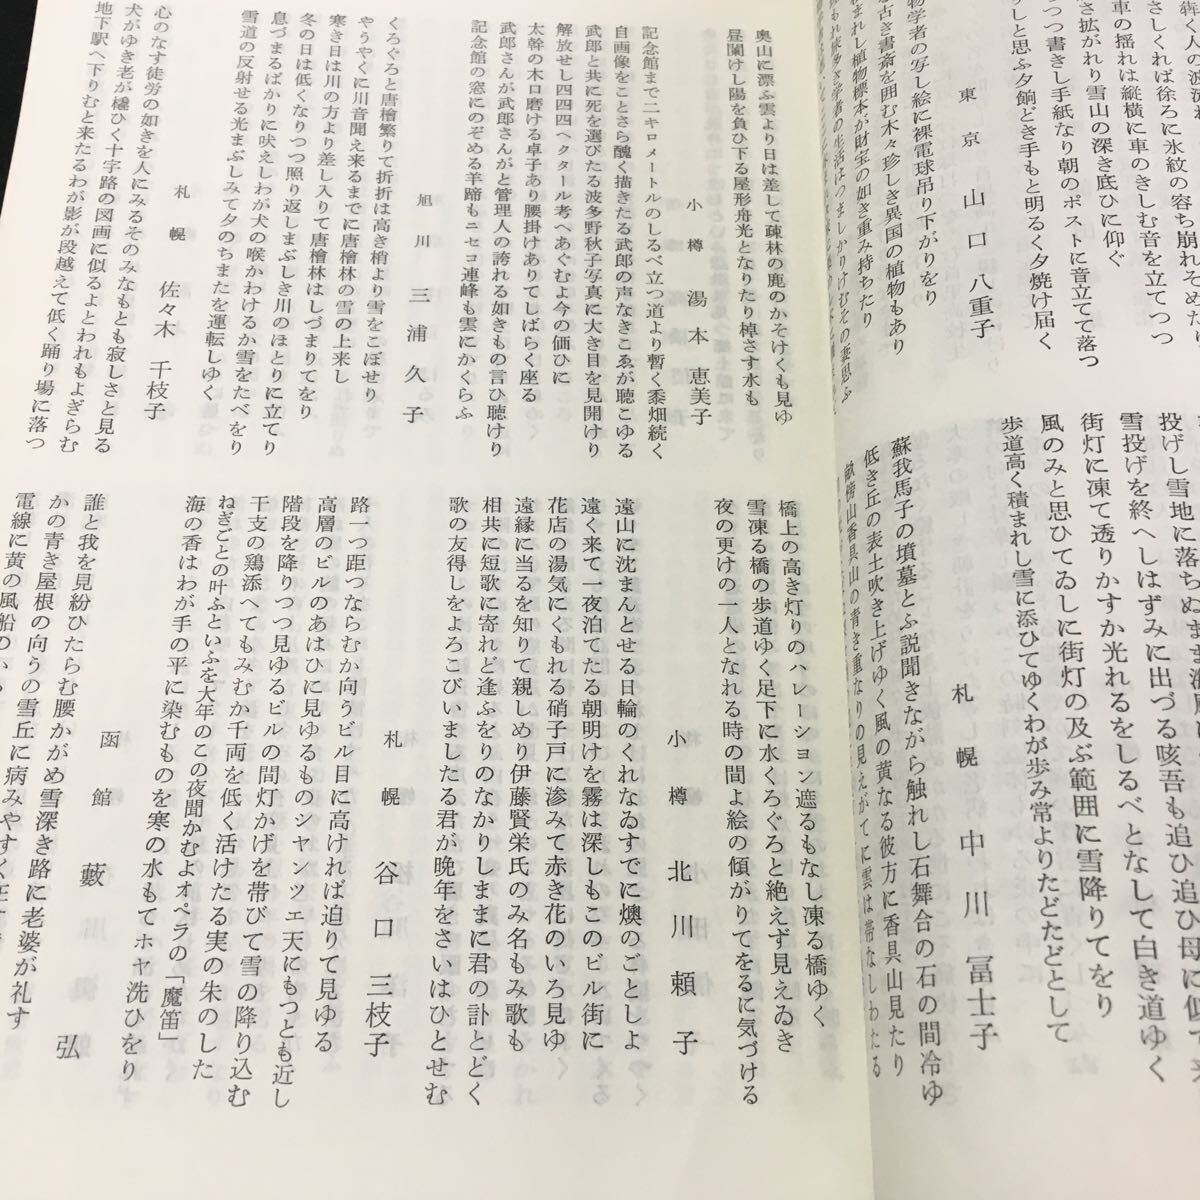 さしくれば徐ろに氷紋の容ち崩れそめたり
車の揺れは縦横に車のきしむ音を立てつつ
さ拡がれり雪山の深き底ひに仰ぐ
つつ書きし手紙なり朝のポストに音立てて落つ
すしと思ふ夕餉どき手もと明るく夕焼け届く
東京 山口八重子
物学者の写し絵に裸電球吊り下がりをり
古き書斎を囲む木々珍しき異国の植物もあり
まれし植物標本が財宝の如き重み持ちたり
投げし雪地に落ちぬまま海風に
雪投げを終へしはずみに出づる咳吾も追ひ追ひ母に似て来
街灯に凍て透りかすか光れるをしるべとなして白き道ゆく
風のみと思ひてゐしに街灯の及ぶ範囲に雪降りてをり
歩道高く積まれし雪に添ひてゆくわが歩み常よりたどたどとして
札幌 中川冨士子
蘇我馬子の墳墓とふ説聞きながら触れし石舞台の石の間冷ゆ
低き丘の表土吹き上げゆく風の黄なる彼方に香具山見たり
畝傍山香具山の青き重なりの見えがてに雲は帯なしわたる
奥山に漂ふ雲より日は差して疎林の鹿のかそけくも見ゆ
昼闌けし陽を負ひ下る屋形舟光となりたり棹さす水も
小樽 湯本恵美子
記念館まで二キロメートルのしるべ立つ道より暫く黍畑続く
自画像をことさら醜く描きたる武郎の声なきこゑが聴こゆる
武郎と共に死を選びたる波多野秋子写真に大き目を見開けり
解放せし四四四ヘクタール考へあぐむよ今の価ひに
太幹の木口磨ける卓子あり腰掛けありてしばらく座る
武郎さんが武郎さんがと管理人の誇れる如きもの言ひ聴けり
記念館の窓にのぞめる羊蹄もニセコ連峰も雲にかくらふ
旭川 三浦久子
くろぐろと唐檜繁りて折折は高き梢より雪をこぼせり
やうやくに川音聞え来るまでに唐檜林の雪の上来し
寒き日は川の方より差し入りて唐檜林はしづまりてをり
冬の日は低くなりつつ照り返しまぶしき川のほとりに立てり
息づまるばかりに吠えしわが犬の喉かわけるか雪をたべをり
雪道の反射せる光まぶしみて夕のちまたを運転しゆく
札幌 佐々木千枝子
心のなす徒労の如きを人にみるそのみなもとも寂しさと見る
犬がゆき老が橇ひく十字路の図画に似るよとわれもよぎらむ
地下駅へ下りむと来たるわが影が段越えて低く踊り場に落つ
橋上の高き灯りのハレーション遮るもなし凍る橋ゆく
雪凍る橋の歩道ゆく足下に水くろぐろと絶えず見えゐき
夜の更けの一人となれる時の間よ絵の傾がりてをるに気づける
小樽 北川頼子
遠山に沈まんとせる日輪のくれなゐすでに燠のごとしよ
遠く来て一夜泊てたる朝明けを霧は深しもこのビル街に
花店の湯気にくもれる硝子戸に滲みて赤き花のいろ見ゆ
遠縁に当るを知りて親しめり伊藤賢栄氏のみ名もみ歌も
相共に短歌に寄れど逢ふをりのなかりしままに君の訃とどく
歌の友得しをよろこびいましたる君が晩年をさいはひとせむ
札幌 谷口三枝子
路一つ距つならむか向うビル目に高ければ迫りて見ゆる
高層のビルのあはひに見ゆるものシャンツェ天にもつとも近し
階段を降りつつ見ゆるビルの間灯かげを帯びて雪の降り込む
干支の鶏添へてもみむか千両を低く活けたる実の朱のした
ねぎごとの叶ふといふを大年のこの夜聞かむよオペラの「魔笛」
海の香はわが手の平に染むものを寒の水もてホヤ洗ひをり
函館 藪弘
誰と我を見紛ひたらむ腰かがめ雪深き路に老婆が礼す
かの青き屋根の向うの雪丘に病みやすく在す
電線に黄の風船の